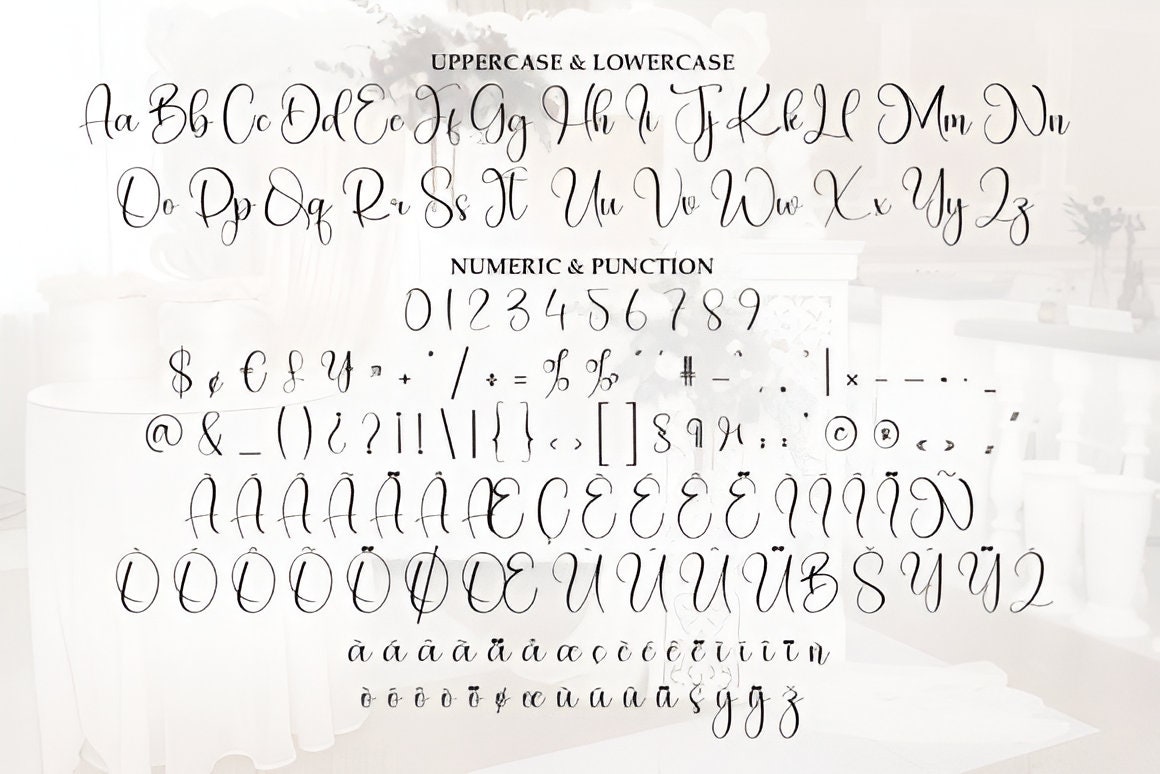 UPPERCASE & LOWERCASE
Aa Bb Cc Dd Ee Ff Gg Hh Ii Jj Kk Ll Mm Nn
Oo Pp Qq Rr Ss Tt Uu Vv Ww Xx Yy Zz
NUMERIC & PUNCTION
0 1 2 3 4 5 6 7 8 9
$ ¢ € £ ¥ ¤ + ° / ÷ = % ‰ # – , . | × - — • · _
@ & _ ( ) ¿ ? ¡ ! \ | { } ‹ › [ ] § ¶ : ; © ® « »
À Á Â Ã Ä Å Æ Ç È É Ê Ë Ì Í Î Ï Ñ
Ò Ó Ô Õ Ö Ø Œ Ù Ú Û Ü ß Š Ý Ÿ Ž
à á â ã ä å æ ç è é ê ë ì í î ï ñ
ò ó ô õ ö ø œ ù ú û ü š ý ÿ ž